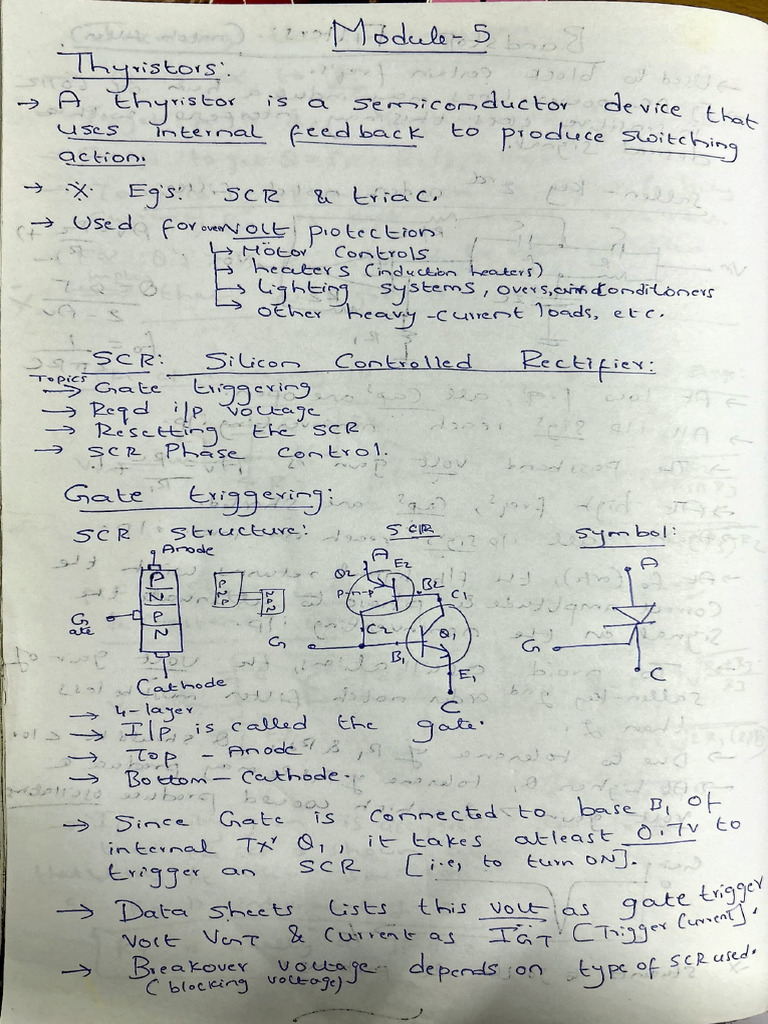 Module-5
Thyristors:
→ A thyristor is a semiconductor device that
uses internal feedback to produce switching
action.
→ ※ Eg's: SCR & triac.
→ Used for over VOLT protection
→ Motor controls
→ heaters (induction heaters)
→ lighting systems, overs, conditioners
→ other heavy-current loads, etc.
SCR: Silicon Controlled Rectifier:
Topics
→ Gate triggering
→ Reqd i/p voltage
→ Resetting the SCR
→ SCR Phase control.
Gate triggering:
SCR structure: SCR symbol:
Anode
P
N
P
N
Gate
Cathode
P
N
P
N
P
N
A
E2
Q2
P-n-p
B2
C1
C2
Q1
G
B1
E1
C
A
G
C
→ 4-layer
→ I/p is called the gate.
→ Top - Anode
→ Bottom - Cathode.
→ Since Gate is connected to base B1 of
internal Txr Q1, it takes atleast 0.7v to
trigger an SCR [i.e, to turn ON].
→ Data sheets lists this volt as gate trigger
volt VGT & current as IGT [Trigger Current].
→ Breakover voltage depends on type of SCR used.
(blocking voltage)